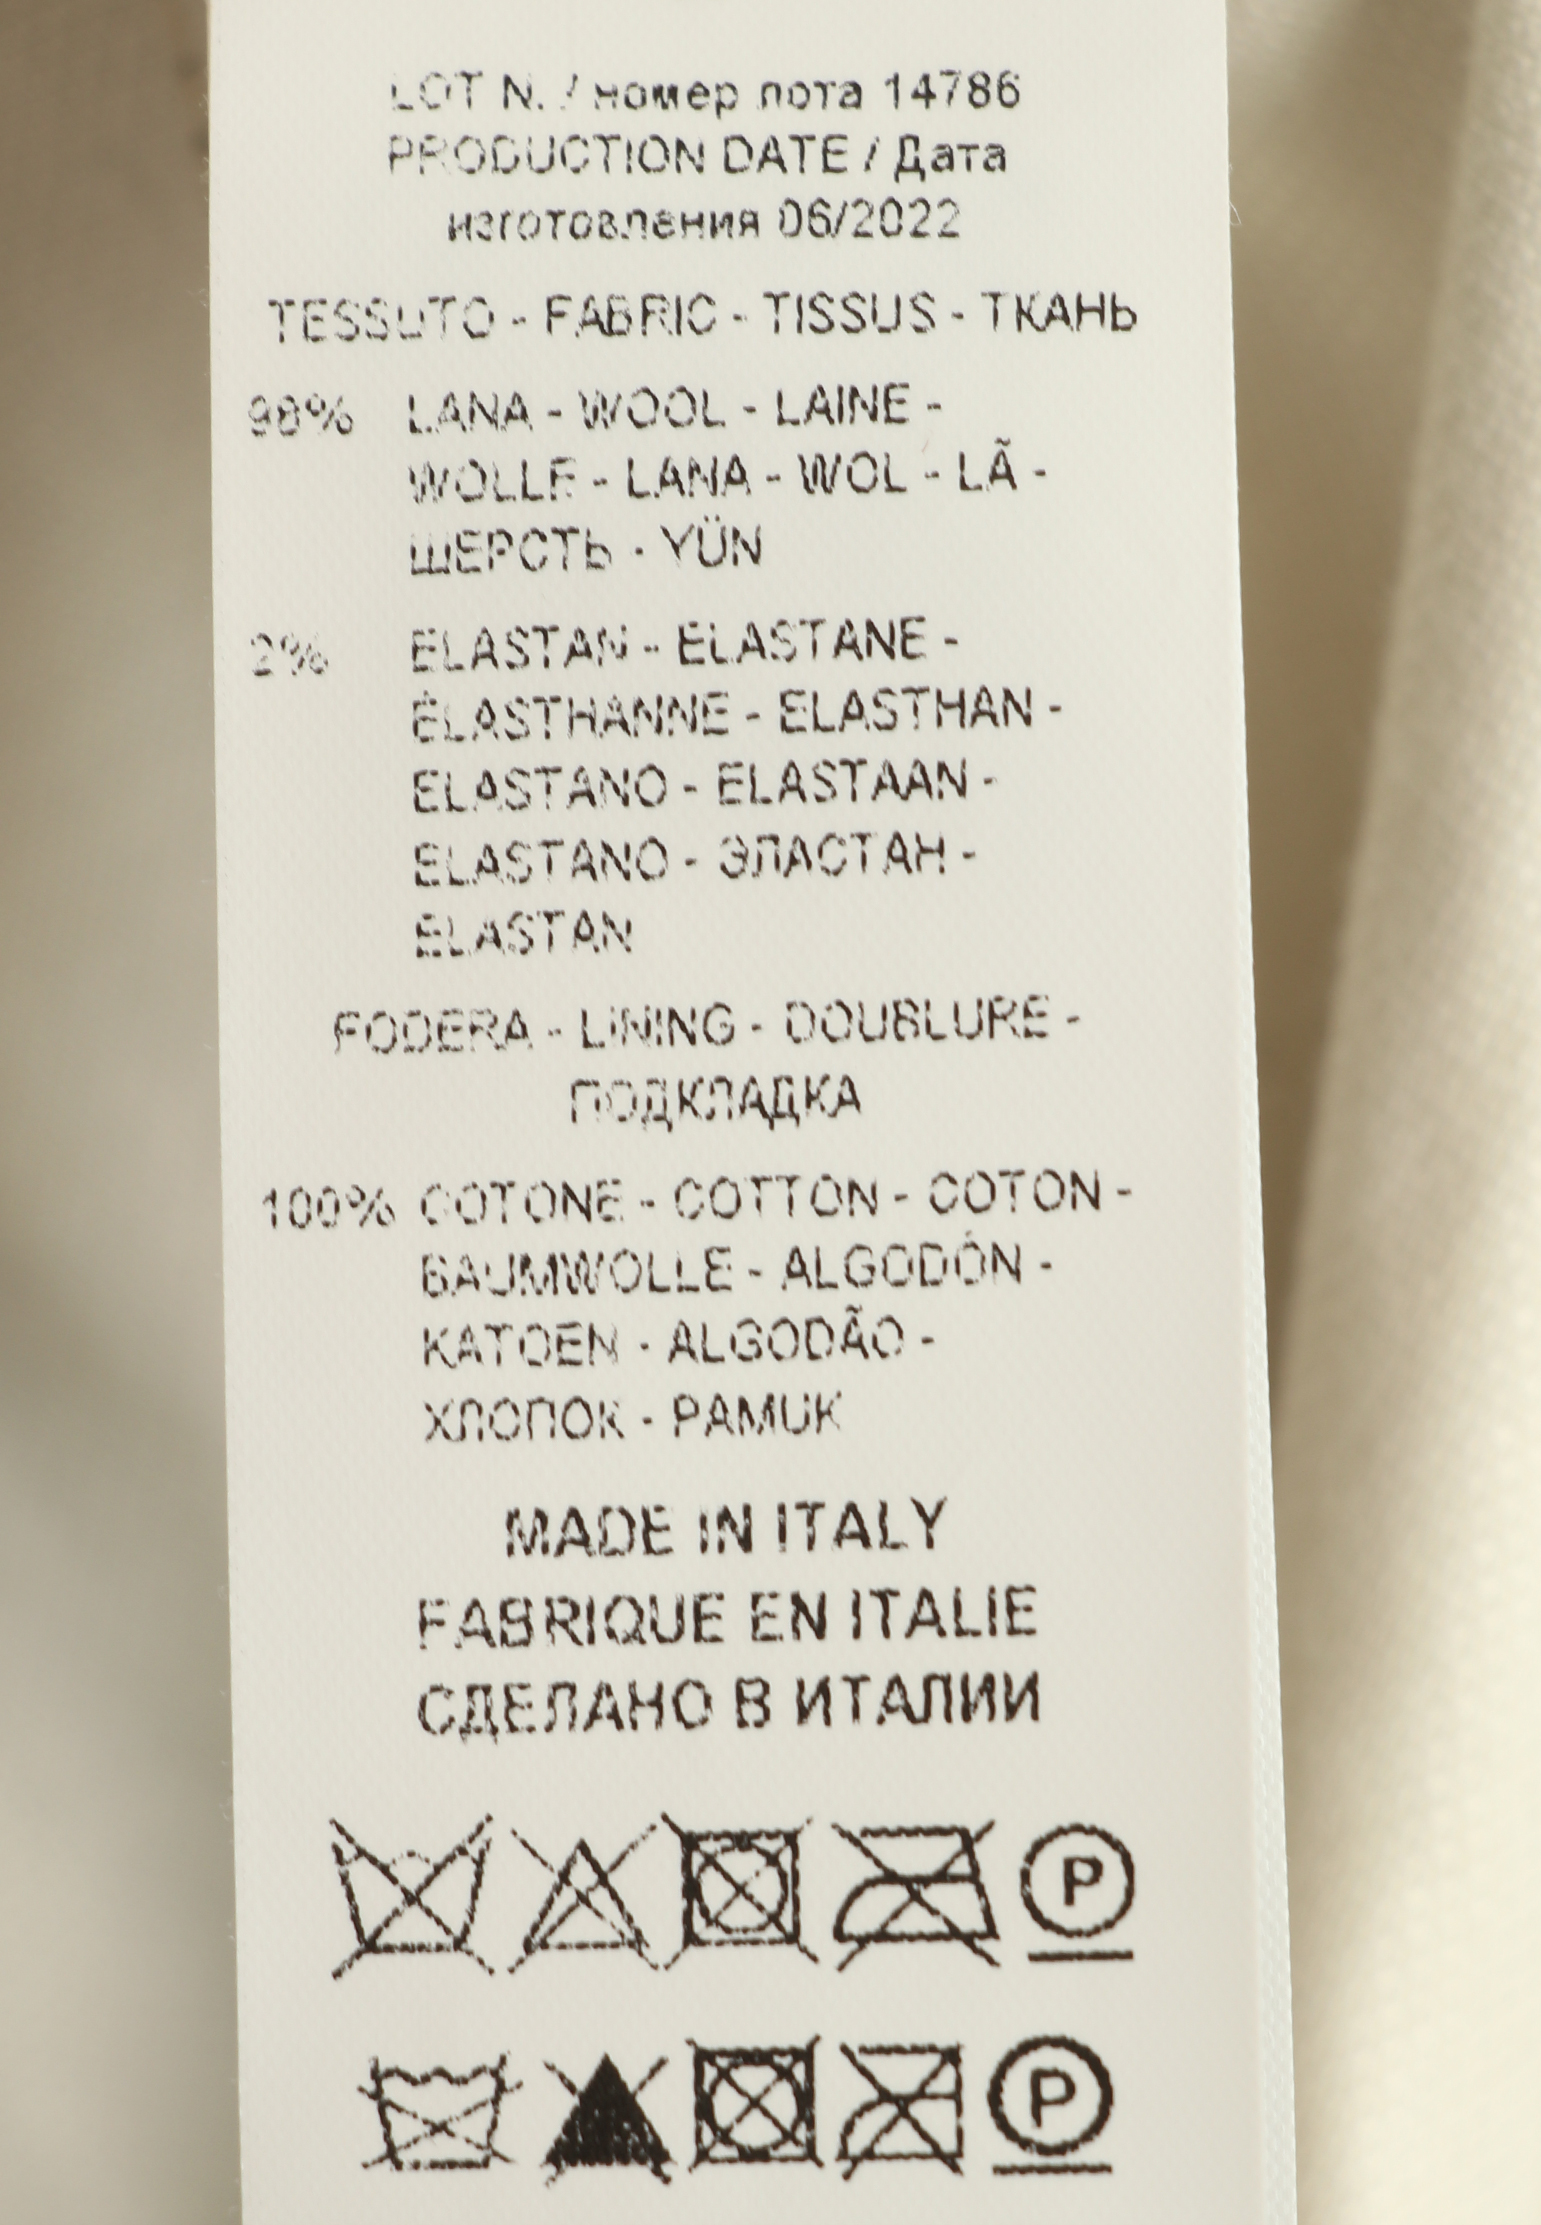 LOT N. / номер лота 14786
PRODUCTION DATE / Дата
изготовления 06/2022
TESSUTO - FABRIC - TISSUS - ТКАНЬ
98% LANA - WOOL - LAINE -
WOLLE - LANA - WOL - LÃ -
ШЕРСТЬ - YÜN
2% ELASTAN - ELASTANE -
ÉLASTHANNE - ELASTHAN -
ELASTANO - ELASTAAN -
ELASTANO - ЭЛАСТАН -
ELASTAN
FODERA - LINING - DOUBLURE -
ПОДКЛАДКА
100% COTONE - COTTON - COTON -
BAUMWOLLE - ALGODÓN -
KATOEN - ALGODÃO -
ХЛОПОК - PAMUK
MADE IN ITALY
FABRIQUE EN ITALIE
СДЕЛАНО В ИТАЛИИ
P
P